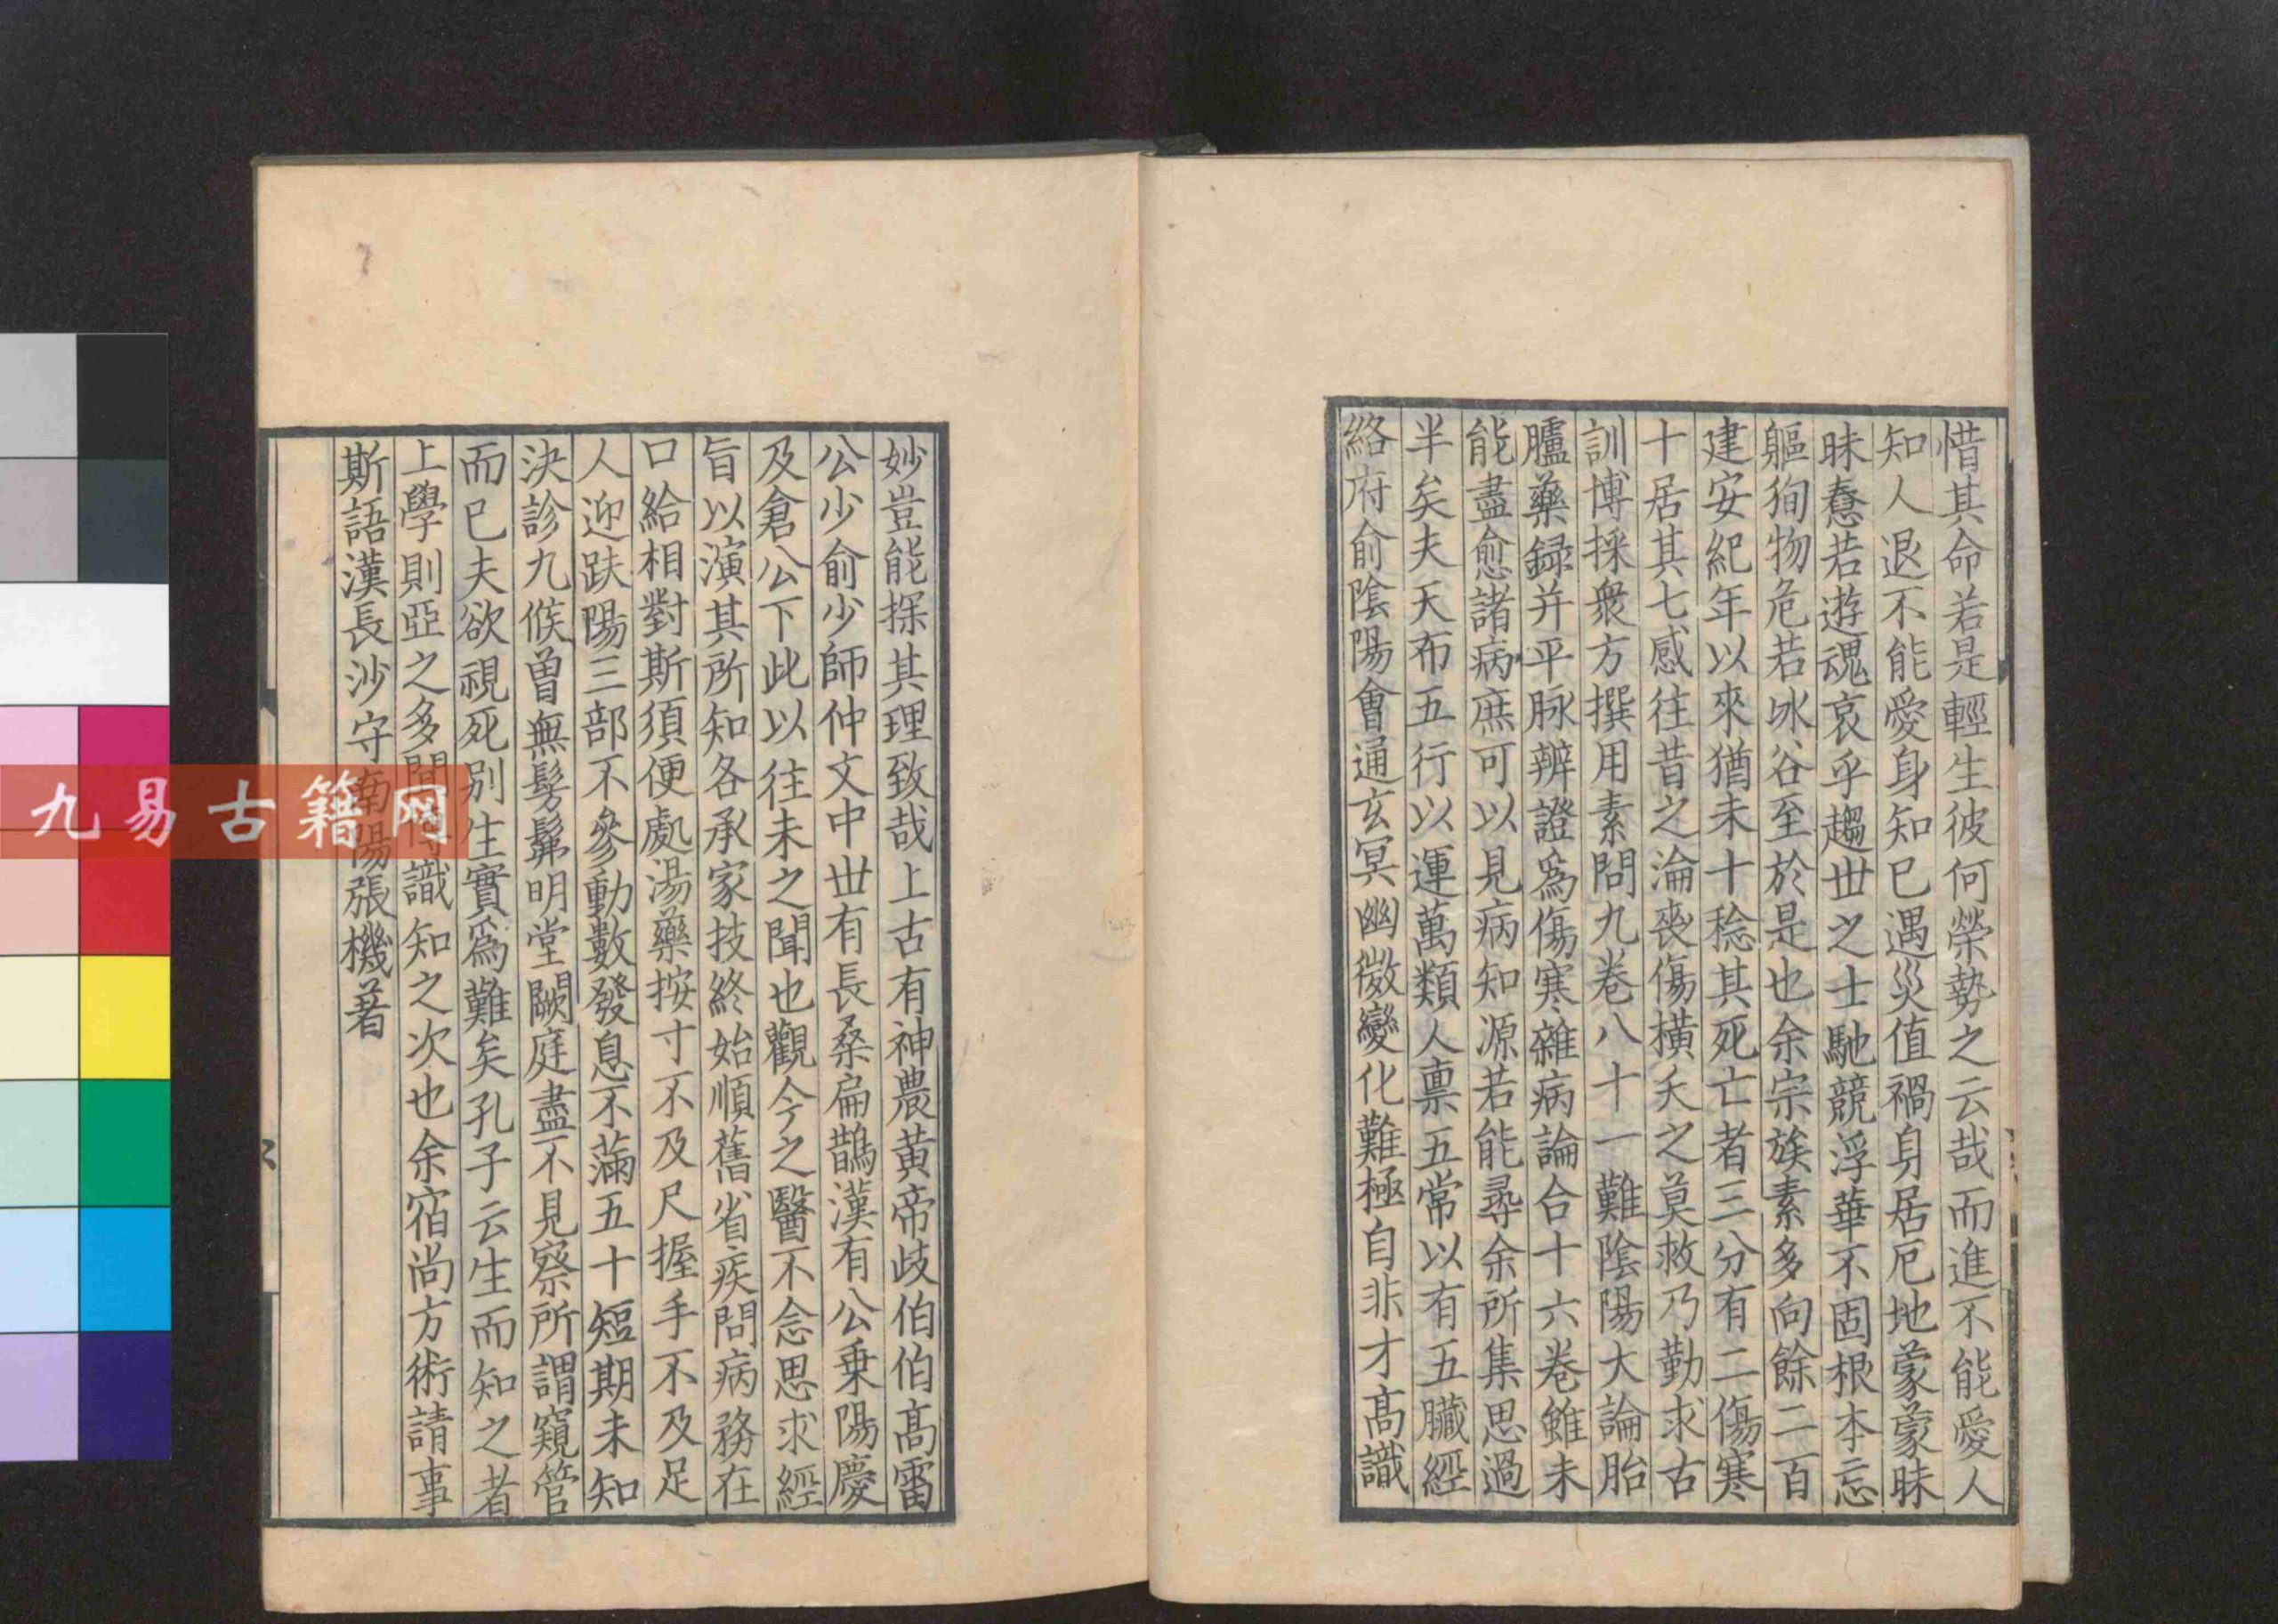 惜其命若是輕生彼何榮勢之云哉而進不能愛人
知人退不能愛身知已遇災值禍身居厄地蒙蒙昧
昧惷若遊魂哀乎趨世之士馳競浮華不固根本忘
軀徇物危若氷谷至於是也余宗族素多向餘二百
建安紀年以來猶未十稔其死亡者三分有二傷寒
十居其七感往昔之淪喪傷橫夭之莫救乃勤求古
訓博採衆方撰用素問九卷八十一難陰陽大論胎
臚藥録并平脉辨證爲傷寒雜病論合十六卷雖未
能盡愈諸病庶可以見病知源若能尋余所集思過
半矣夫天布五行以運萬類人禀五常以有五臟經
絡府俞陰陽會通玄冥幽微變化難極自非才髙識
妙豈能探其理致哉上古有神農黄帝歧伯伯髙雷
公少俞少師仲文中世有長桑扁鵲漢有公乗陽慶
及倉公下此以往未之聞也觀今之醫不念思求經
旨以演其所知各承家技終始順舊省疾問病務在
口給相對斯須便處湯藥按寸不及尺握手不及足
人迎趺陽三部不參動數發息不滿五十短期未知
決診九候曽無髣髴明堂闕庭盡不見察所謂窺管
而已夫欲視死别生實爲難矣孔子云生而知之者
上學則亞之多聞博識知之次也余宿尚方術請事
斯語漢長沙守南陽張機著
九易古籍网